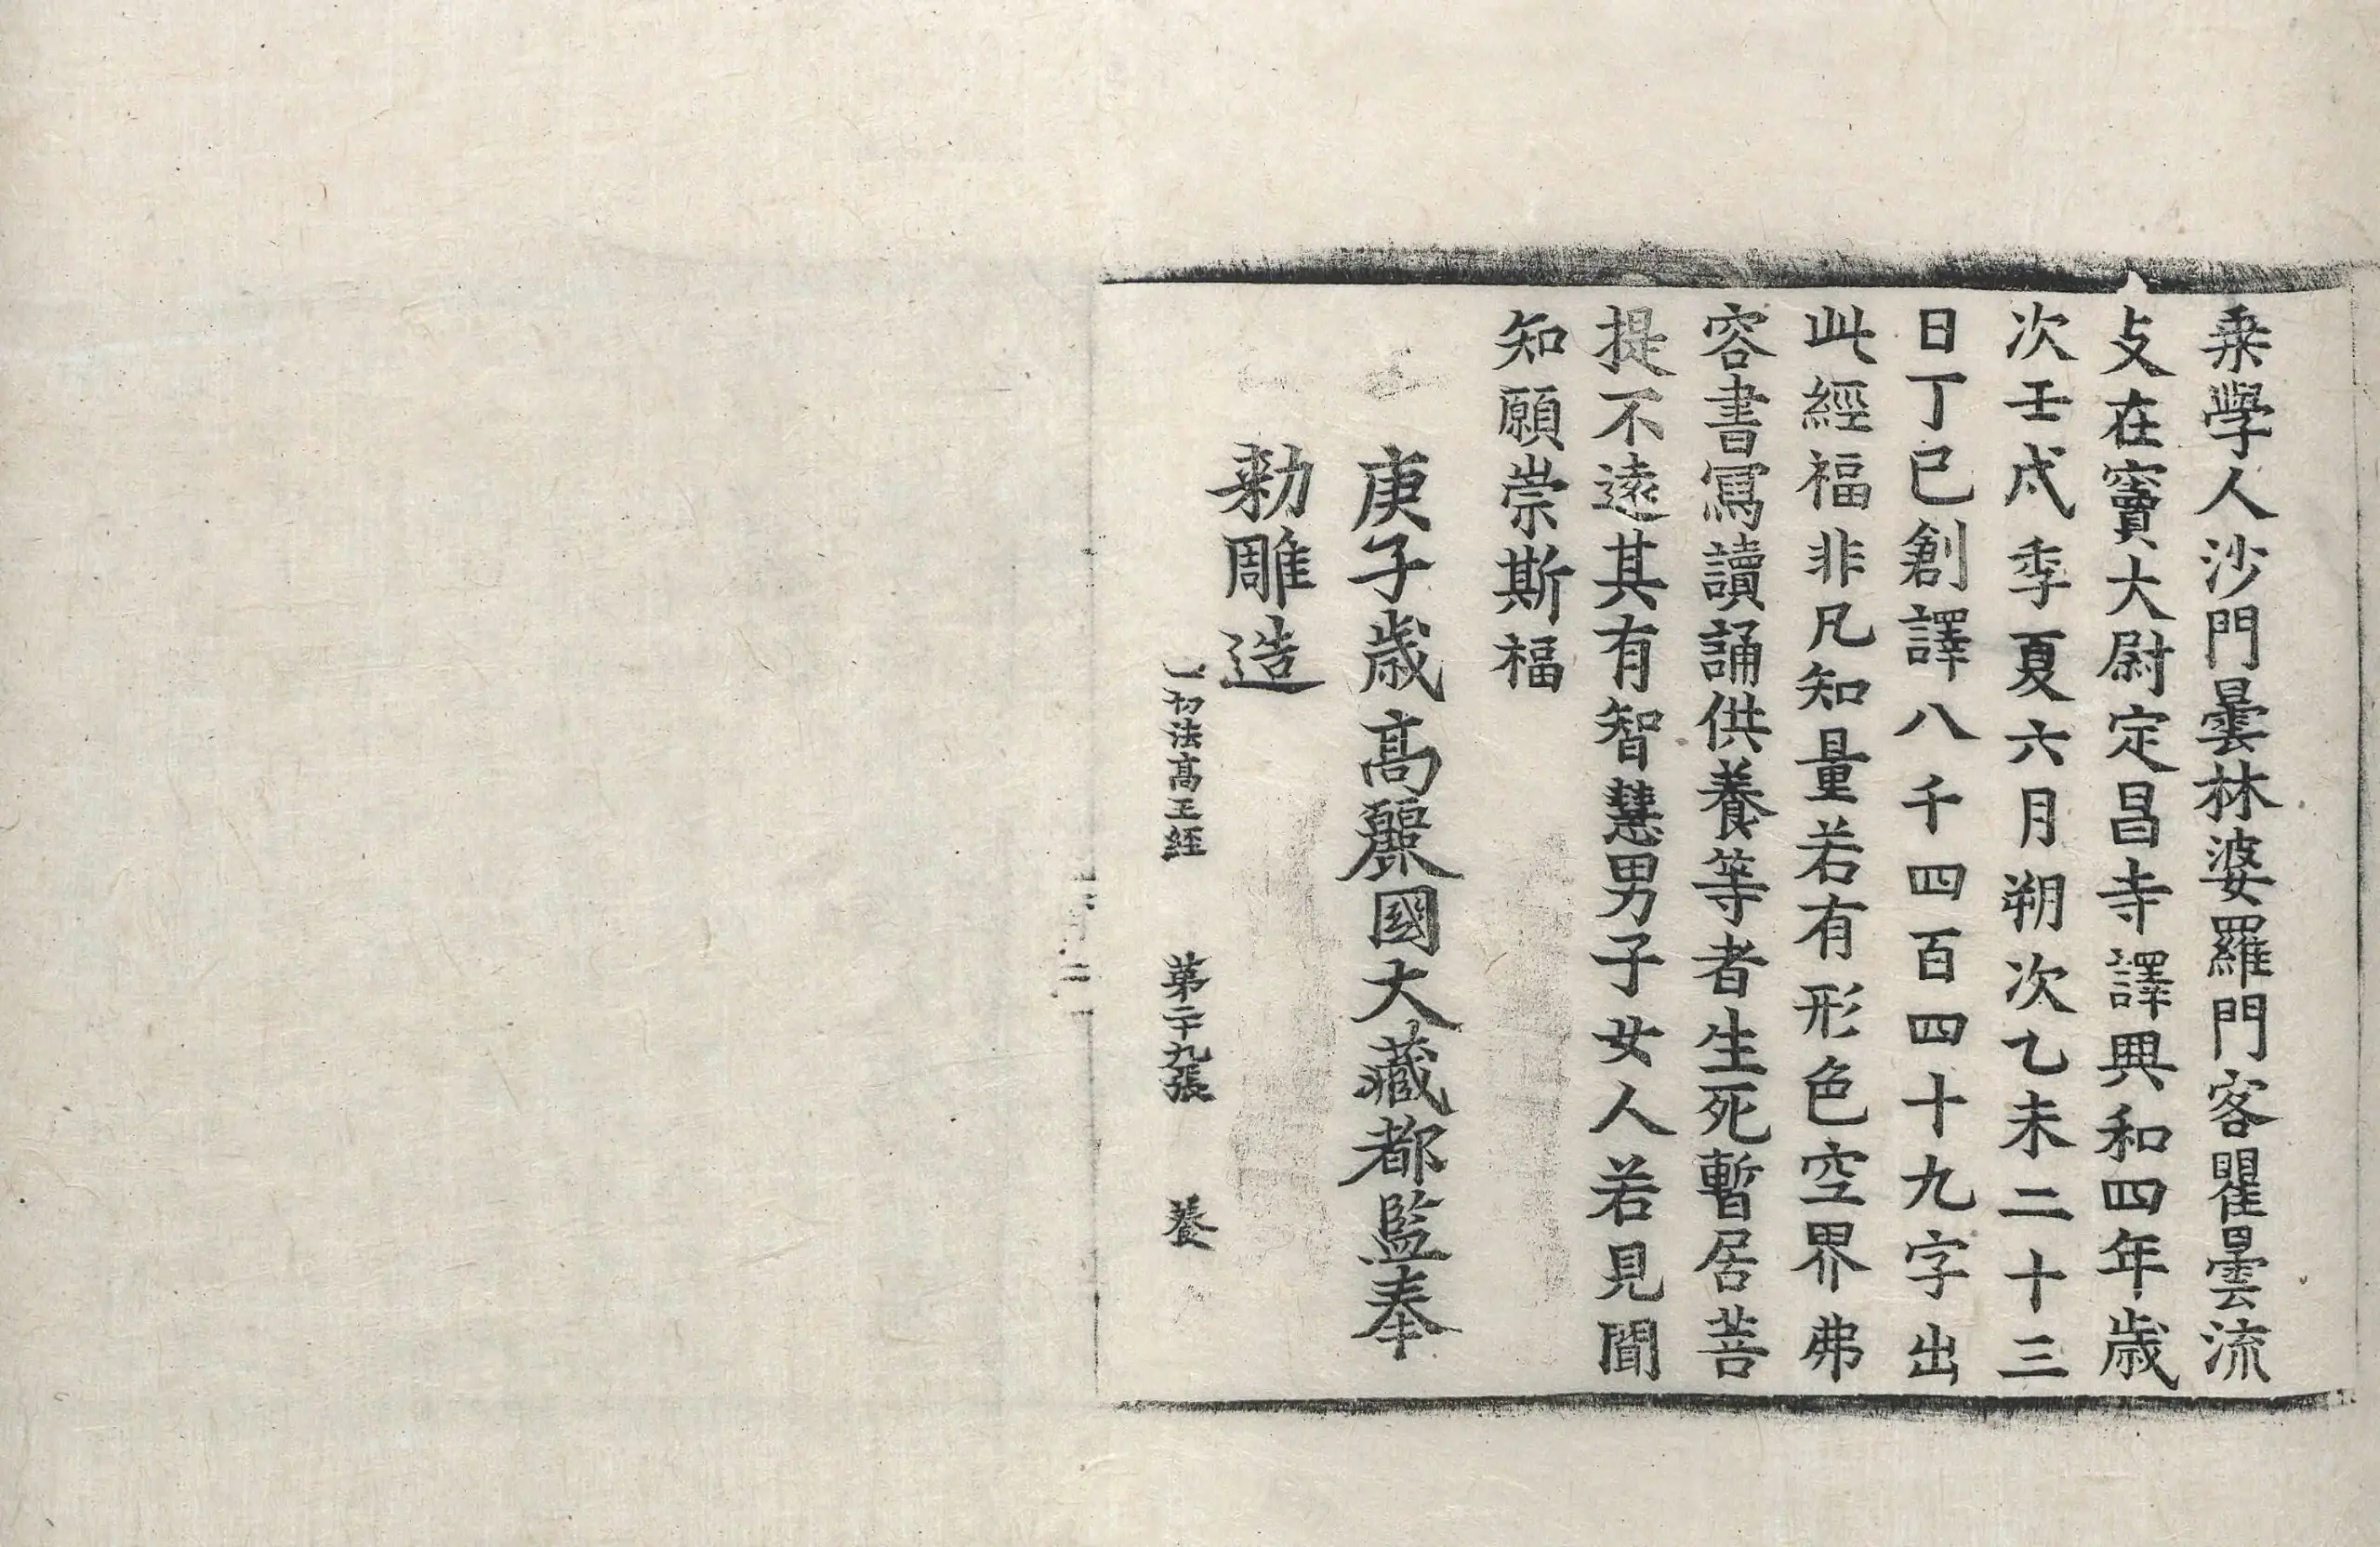 乗學人沙門曇林婆羅門客瞿曇流
支在竇大尉定昌寺譯興和四年歳
次壬戌季夏六月朔次乙未二十三
日丁巳創譯八千四百四十九字出
此經福非凡知量若有形色空界弗
容書寫讀誦供養等者生死暫居菩
提不遠其有智慧男子女人若見聞
知願崇斯福
庚子歳高麗國大藏都監奉
勑雕造
一切法髙王經 第二十九張 養